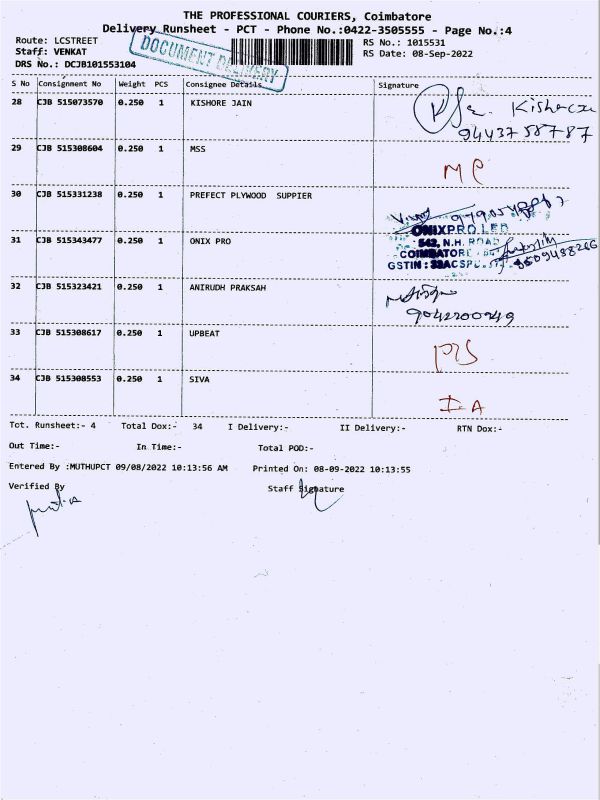 THE PROFESSIONAL COURIERS, Coimbatore
Delivery Runsheet - PCT - Phone No.:0422-3505555 - Page No.:4
Route: LCSTREET
RS No.: 1015531
DOCUMENT DELIVERY
Staff: VENKAT
RS Date: 08-Sep-2022
DRS No.: DCJB101553104
S No Consignment No Weight PCS Consignee Details Signature
28 CJB 515073570 0.250 1 KISHORE JAIN
9443758787
29 CJB 515308604 0.250 1 MSS
30 CJB 515331238 0.250 1 PREFECT PLYWOOD SUPPIER
31 CJB 515343477 0.250 1 ONIX PRO
ONIXPRO LED
542, N.H. ROAD
COIMBATORE
GSTIN : 33ACSP
32 CJB 515323421 0.250 1 ANIRUDH PRAKSAH
33 CJB 515308617 0.250 1 UPBEAT
34 CJB 515308553 0.250 1 SIVA
Tot. Runsheet:- 4 Total Dox:- 34 I Delivery:- II Delivery:- RTN Dox:-
Out Time:- In Time:- Total POD:-
Entered By :MUTHUPCT 09/08/2022 10:13:56 AM Printed On: 08-09-2022 10:13:55
Verified By Staff Signature